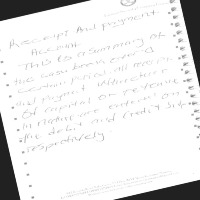 Receipt And payment
Account
This is a summary of
the cash book over a
certain period. All receipts
and payment
Of capital or revenue
in nature are entered on
the debit and credit side
respectively